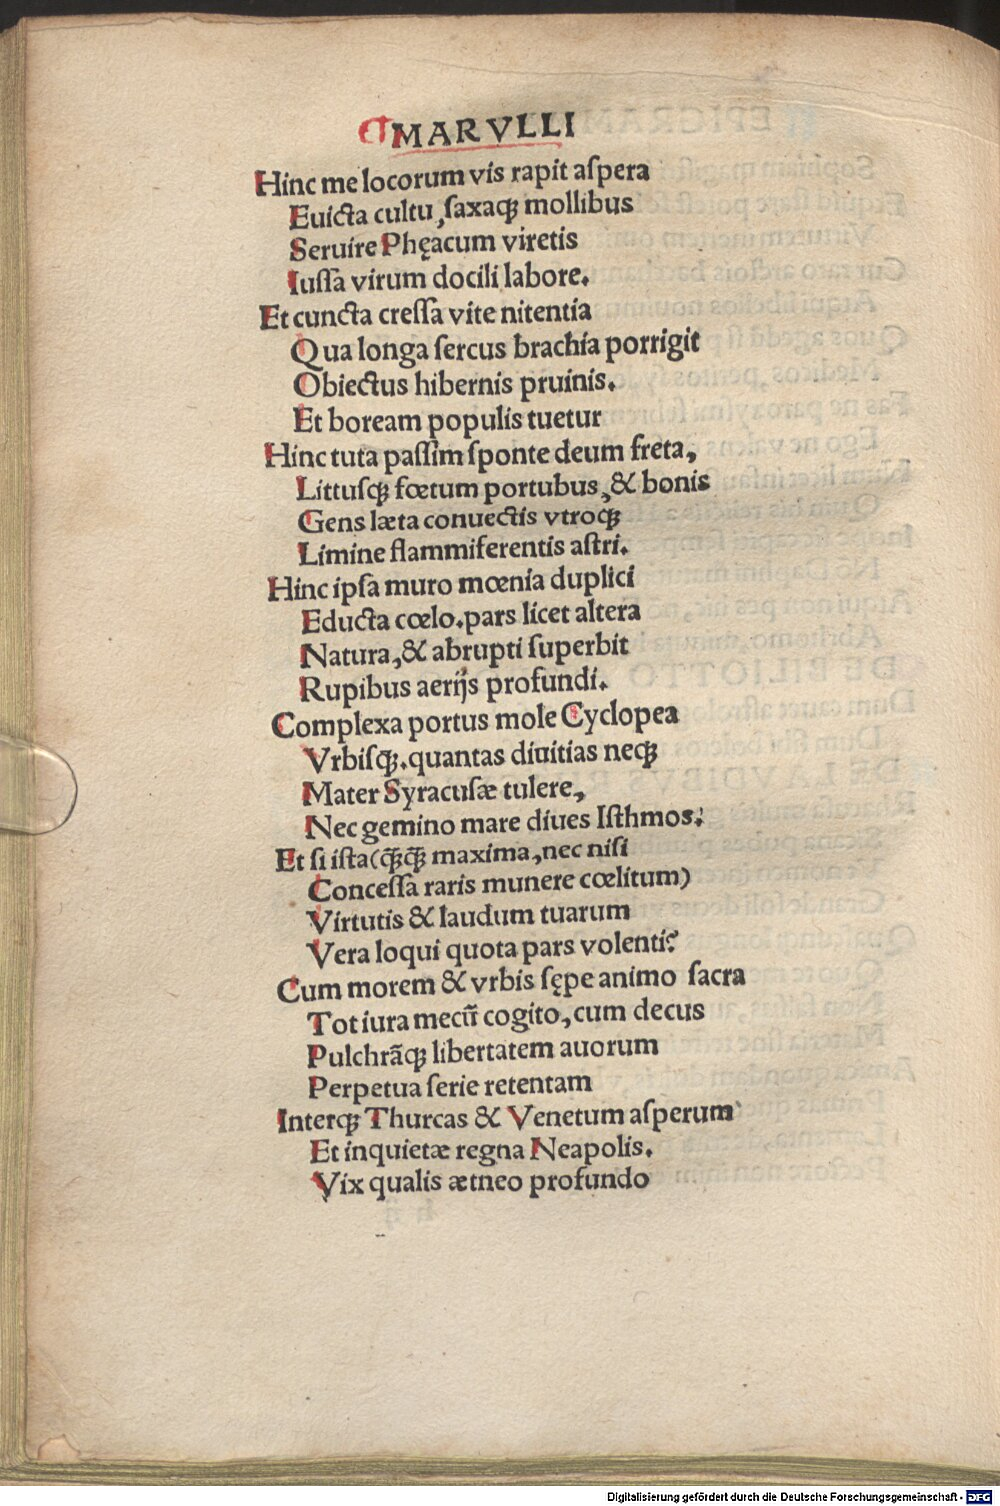 MARVLLI
Hinc me locorum vis rapit aſpera
Euicta cultu, ſaxaqꝫ mollibus
Seruire Phęacum viretis
Iuſſa virum docili labore.
Et cuncta creſſa vite nitentia
Qua longa ſercus brachia porrigit
Obiectus hibernis pruinis.
Et boream populis tuetur
Hinc tuta paſſim ſponte deum freta,
Littuſqꝫ fœtum portubus, & bonis
Gens læta conuectis vtroqꝫ
Limine flammiferentis aſtri.
Hinc ipſa muro mœnia duplici
Educta cœlo.pars licet altera
Natura,& abrupti ſuperbit
Rupibus aerijs profundi.
Complexa portus mole Cyclopea
Vrbiſqꝫ.quantas diuitias neqꝫ
Mater Syracuſæ tulere,
Nec gemino mare diues Iſthmos:
Et ſi iſta(qꝫ̃qꝫ̃ maxima,nec niſi
Conceſſa raris munere cœlitum)
Virtutis & laudum tuarum
Vera loqui quota pars volenti?
Cum morem & vrbis ſępe animo ſacra
Tot iura mecū cogito,cum decus
Pulchrãqꝫ libertatem auorum
Perpetua ſerie retentam
Interqꝫ Thurcas & Venetum aſperum
Et inquietæ regna Neapolis.
Vix qualis ætneo profundo
Digitalisierung gefördert durch die Deutsche Forschungsgemeinschaft - DFG